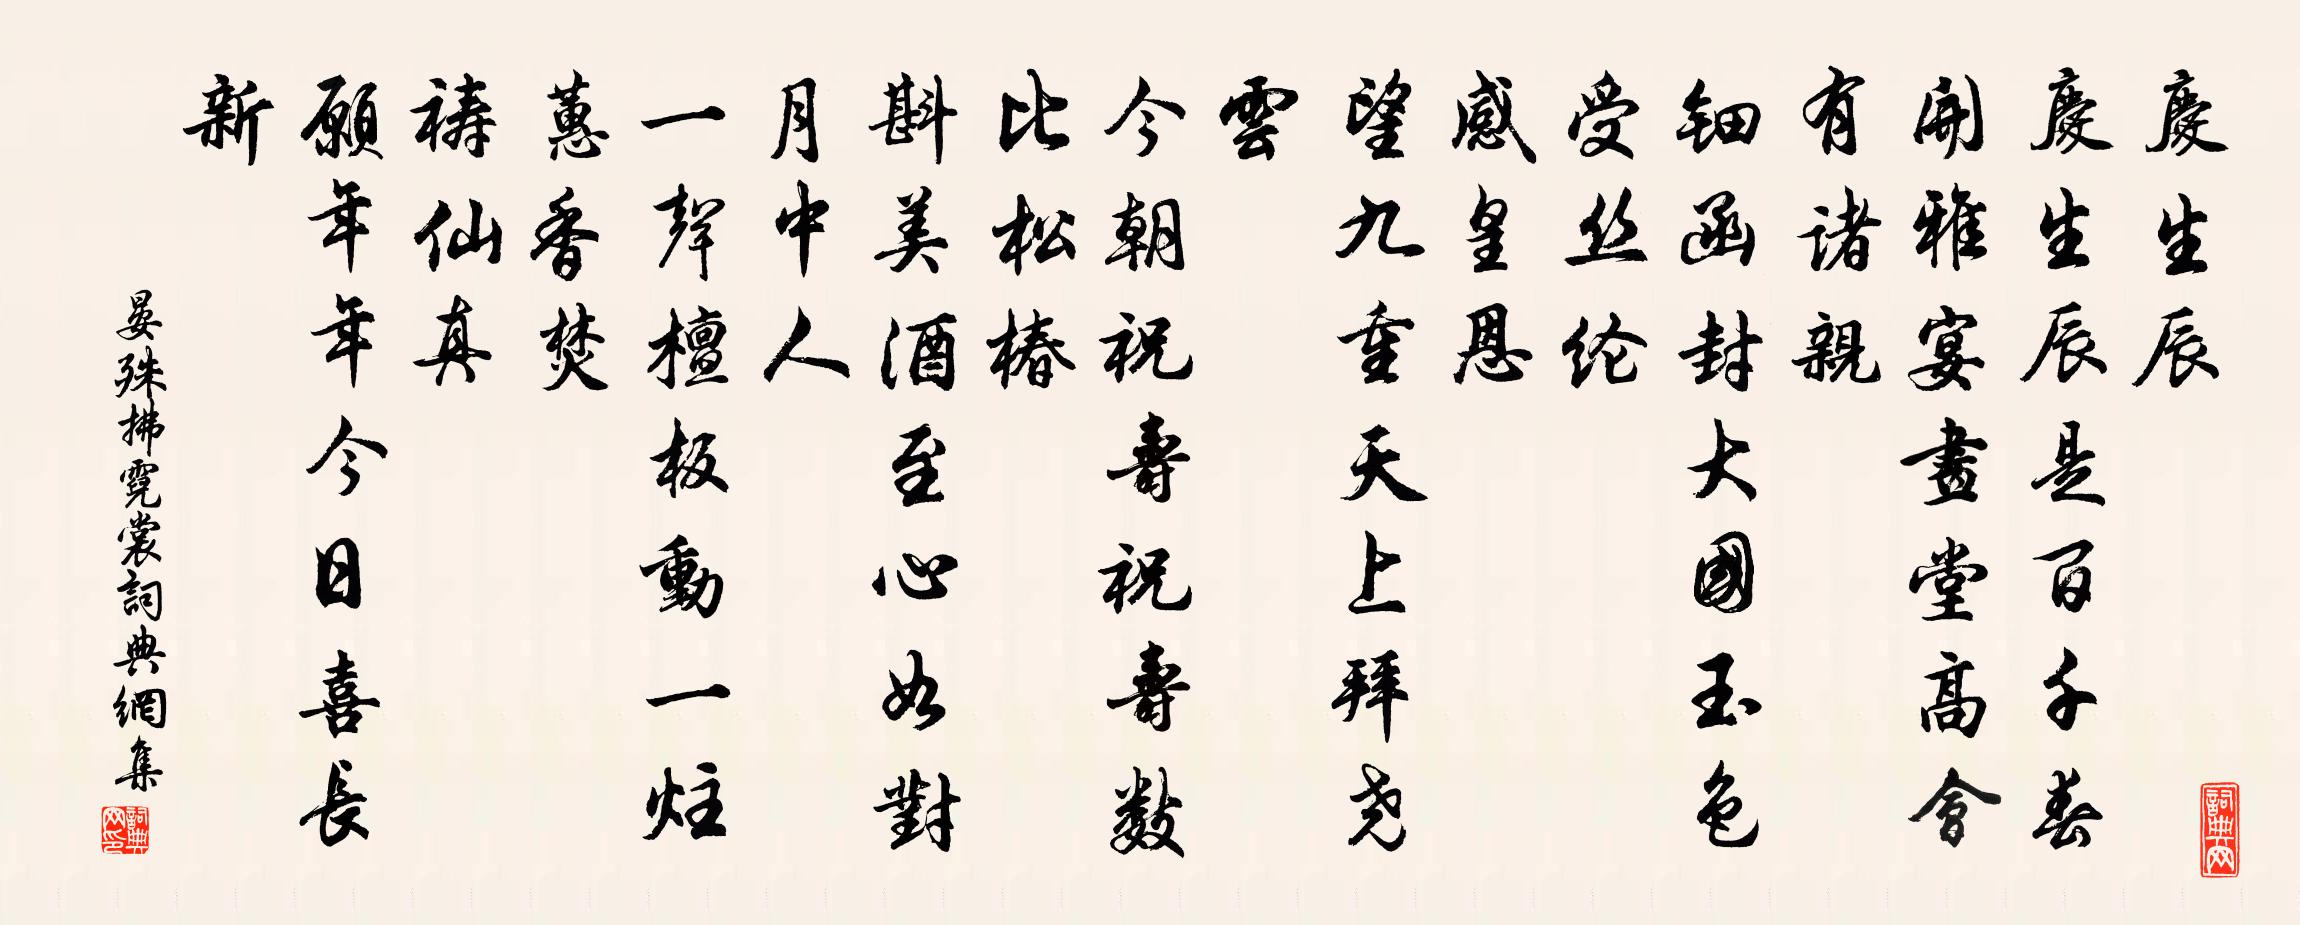 慶生辰
慶生辰是百千春
開雅宴畫堂高會
有諸親
鈿函封大國玉色
受丝纶
感皇恩
望九重天上拜尧
雲
今朝祝壽祝壽數
比松椿
斟美酒至心如對
月中人
一聲檀板動一炷
蕙香焚
禱仙真
願年年今日喜長
新
晏殊拂霓裳詞典網集
詞典网
詞典网印